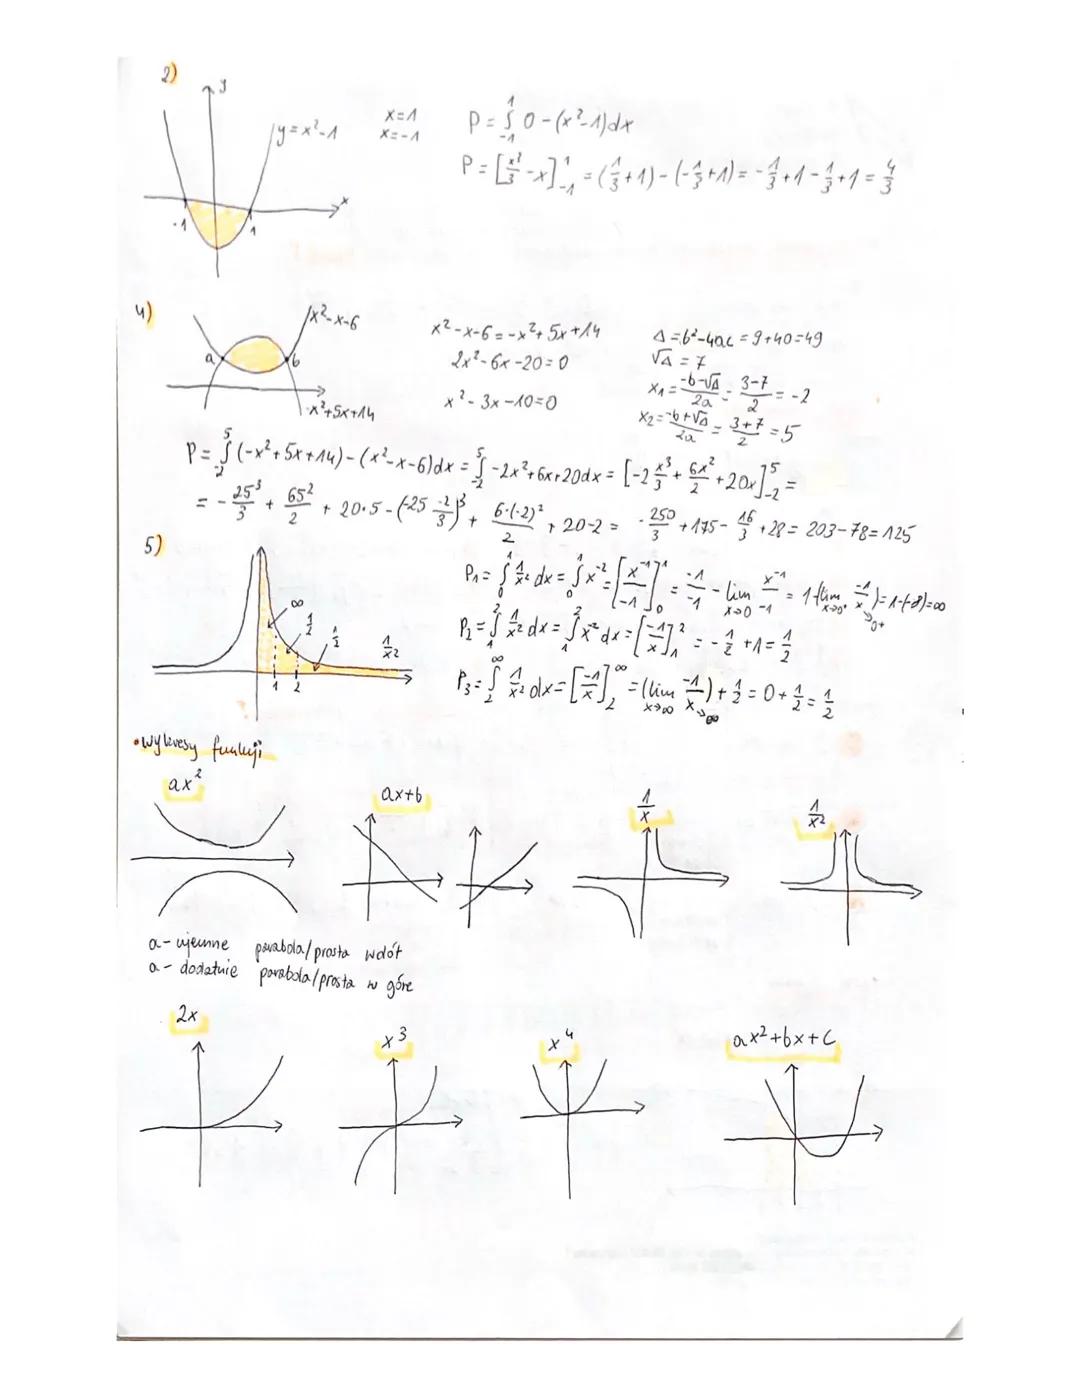 2)
y
y=x²-1
x
-1
1
x=1
x=-1
P = ∫₋₁¹ 0-(x²-1)dx
P = [x³/3 - x]₋₁¹ = (1/3+1)-(-1/3+1) = -1/3+1-1/3+1 = 4/3
4)
x²-x-6
a
b
-x²+5x+14
x²-x-6=-x²+5x+14
2x²-6x-20=0
x²-3x-10=0
Δ=b²-4ac=9+40=49
√Δ=7
x₁=(-b-√Δ)/2a=(3-7)/2=-2
x₂=(-b+√Δ)/2a=(3+7)/2=5
P = ∫₋₂⁵ (-x²+5x+14)-(x²-x-6)dx = ∫₋₂⁵ -2x²+6x+20dx = [-2 x³/3 + 6x²/2 + 20x]₋₂⁵ =
= - 25³/3 + 65²/2 + 20·5 - (-25 -2/3)³ + 6·(-2)²/2 + 20-2 = -250/3 +175- 16/3 +28 = 203-78=125
5)
∞
1/2
1/2
1/x²
1
2
P₁ = ∫₀¹ 1/x² dx = ∫₀¹ x⁻² = [x⁻¹/-1]₀¹ = -1/-1 - lim x→0 x⁻¹/-1 = 1-(lim x→0⁺ -1/x→0+) = 1-(-∞)=∞
P₂ = ∫₁² 1/x² dx = ∫₁² x⁻² dx = [-1/x]₁² = -1/2 +1 = 1/2
P₃ = ∫₂^∞ 1/x² dx = [-1/x]₂^∞ = (lim x→∞ -1/x→∞) + 1/2 = 0 + 1/2 = 1/2
•wykresy funkcji
ax²
ax+b
1/x
1/x²
a- ujemne parabola/prosta wdół
a- dodatnie parabola/prosta w góre
2x
x³
x⁴
ax²+bx+c